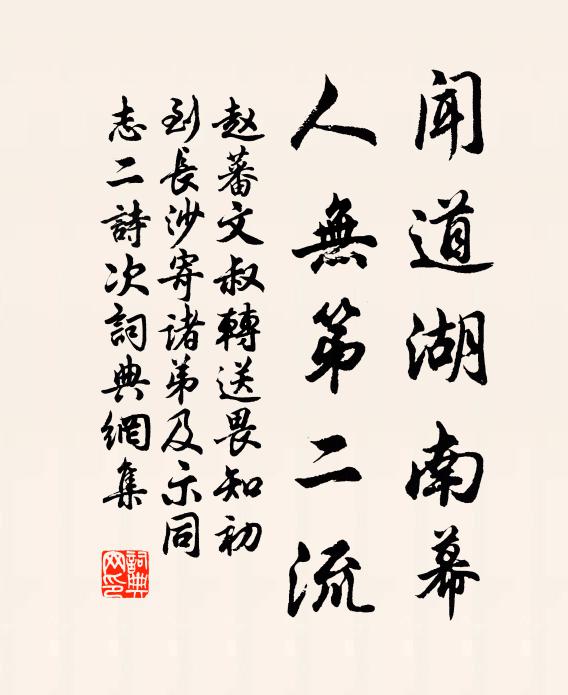 闻道湖南幕
人無第二流
赵蕃文叔轉送畏知初
到長沙寄诸弟及示同
志二詩次詞典網集
詞典网印